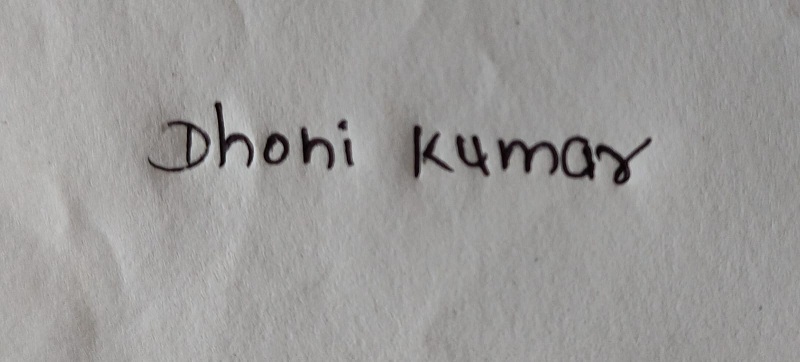 Dhoni Kumar